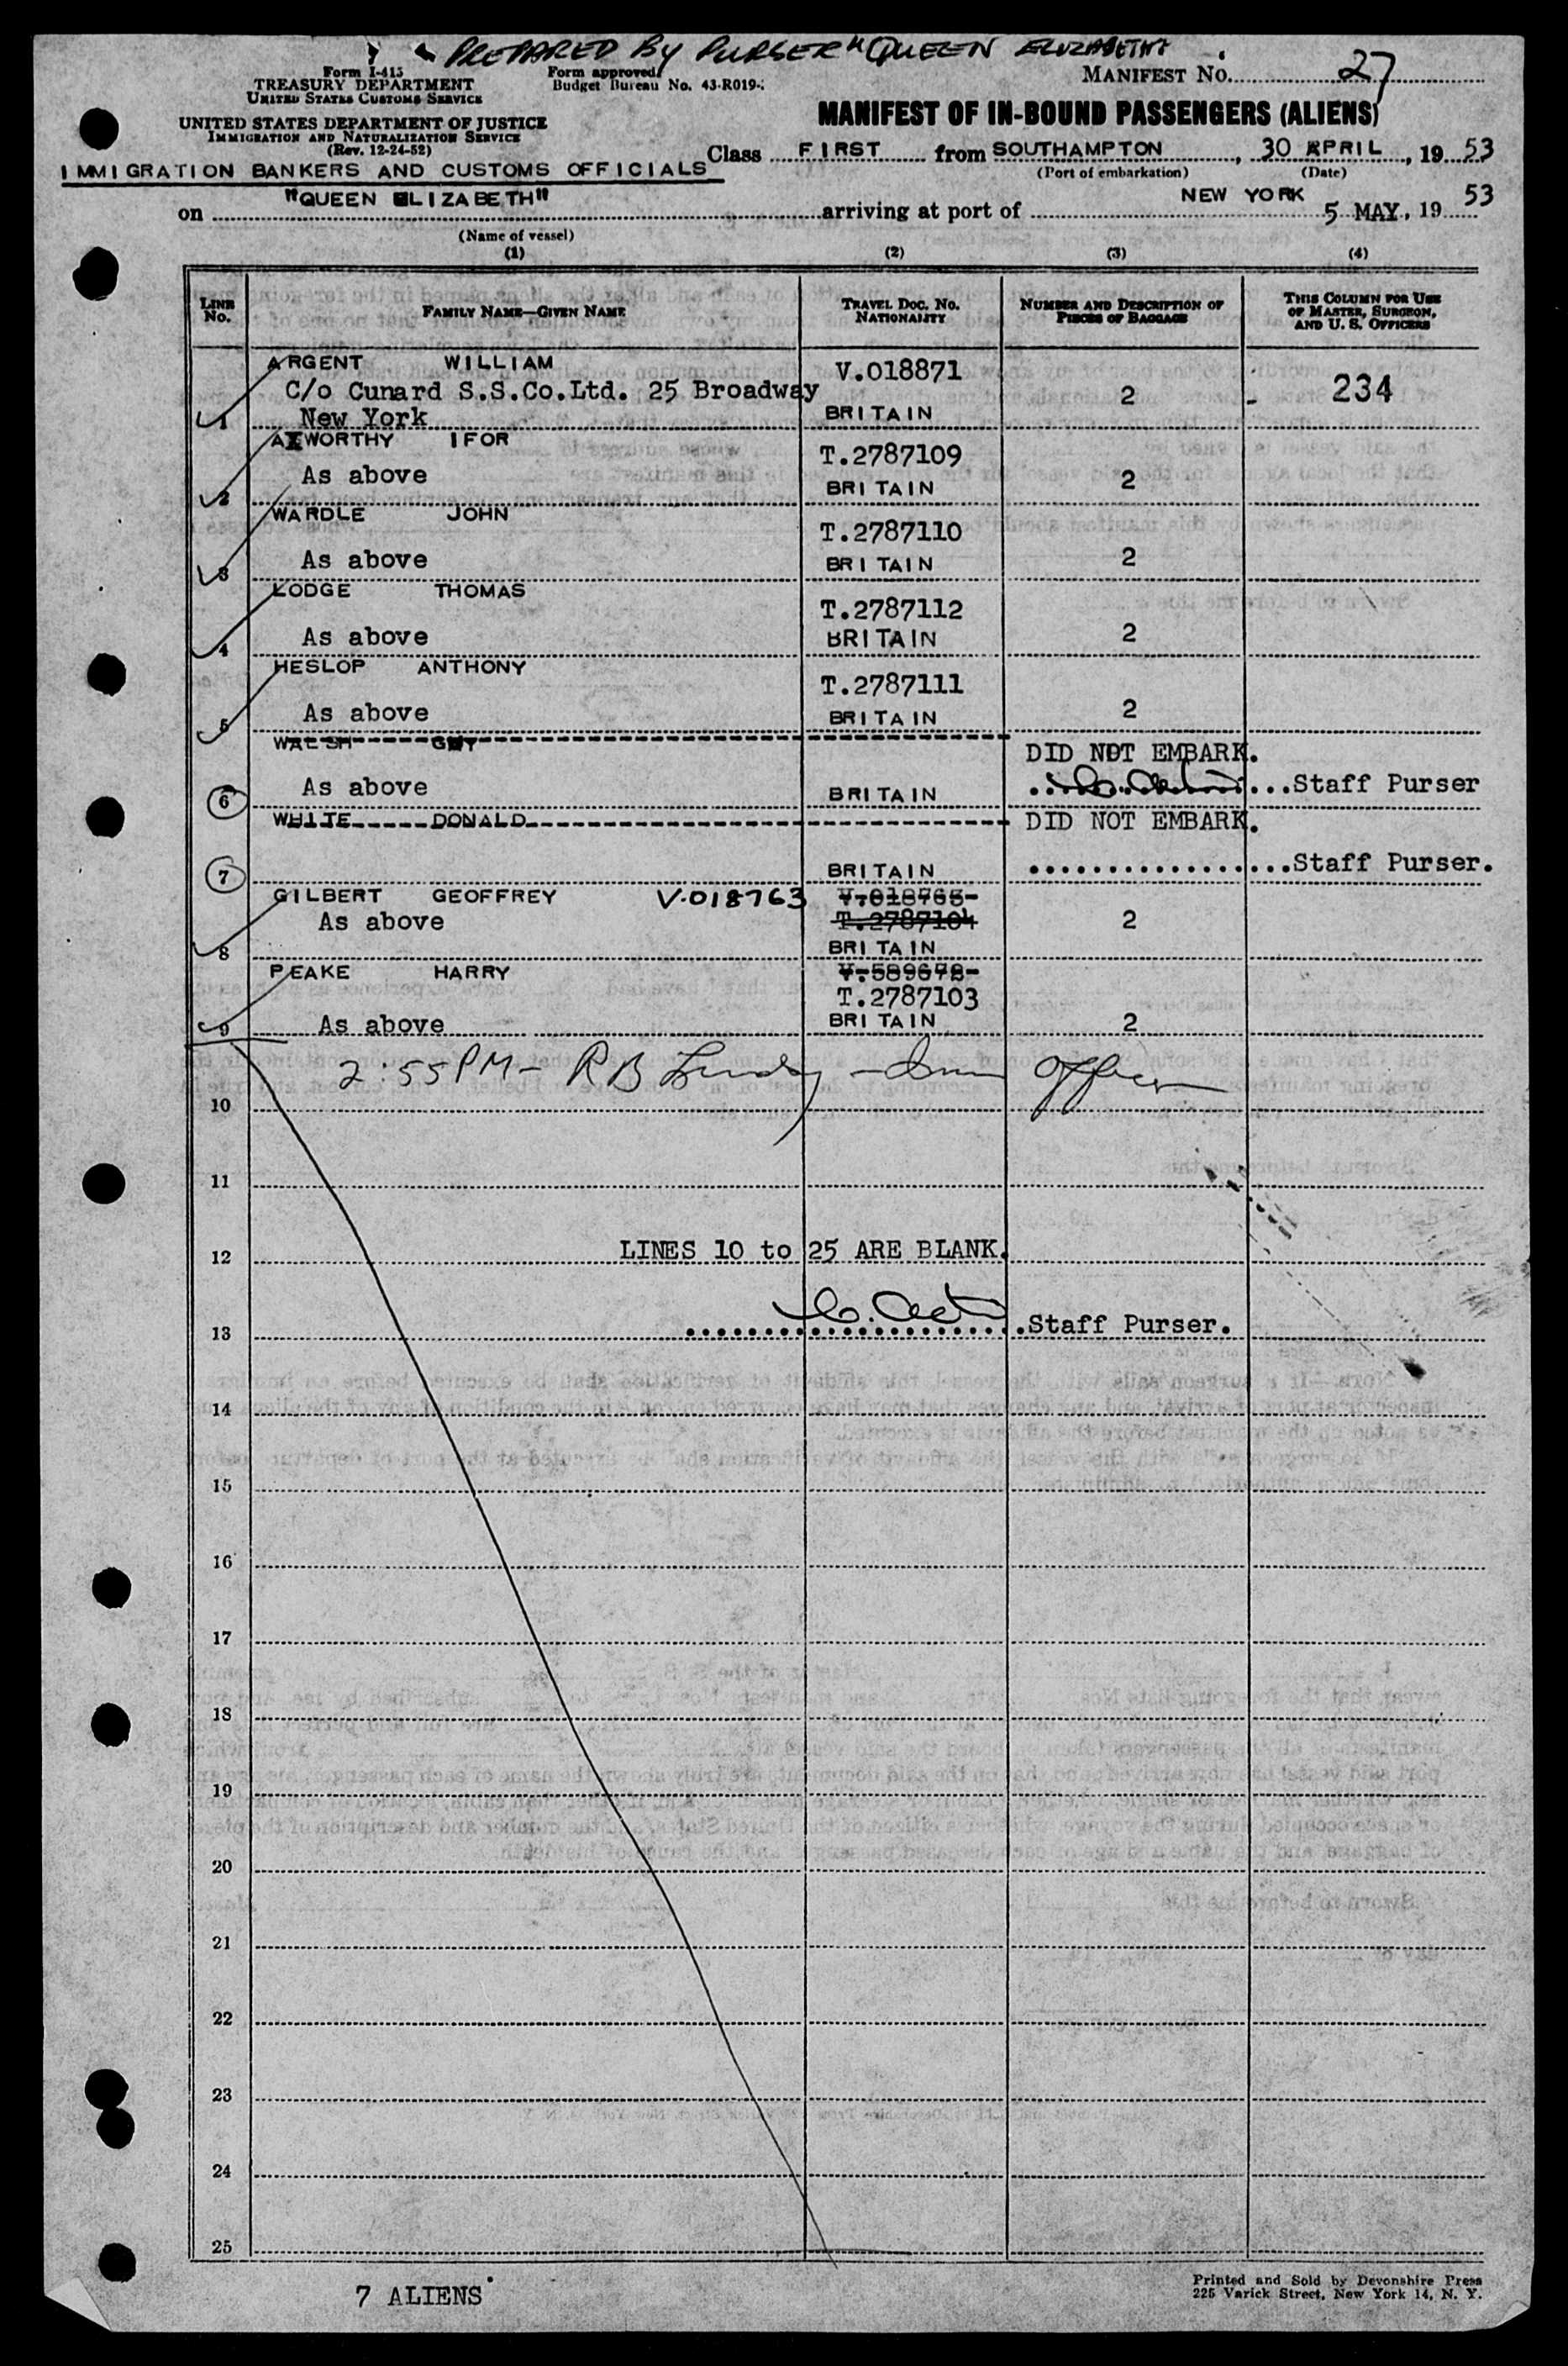 PREPARED BY PURSER "QUEEN ELIZABETH"
Form I-415
TREASURY DEPARTMENT
UNITED STATES CUSTOMS SERVICE
Form approved
Budget Bureau No. 43-R019-
MANIFEST No. 27
UNITED STATES DEPARTMENT OF JUSTICE
IMMIGRATION AND NATURALIZATION SERVICE
(Rev. 12-24-52)
MANIFEST OF IN-BOUND PASSENGERS (ALIENS)
IMMIGRATION BANKERS AND CUSTOMS OFFICIALS
Class FIRST from SOUTHAMPTON, 30 APRIL, 19 53
(Port of embarkation) (Date)
on "QUEEN ELIZABETH" arriving at port of NEW YORK 5 MAY, 19 53
(Name of vessel)
(1) (2) (3) (4)
LINE No. FAMILY NAME—GIVEN NAME TRAVEL DOC. NO. NATIONALITY NUMBER AND DESCRIPTION OF PIECES OF BAGGAGE THIS COLUMN FOR USE OF MASTER, SURGEON, AND U. S. OFFICERS
ARGENT WILLIAM V.018871
C/o Cunard S.S.Co.Ltd. 25 Broadway 2 - 234
1 New York BRITAIN
AXWORTHY IFOR T.2787109
As above 2
2 BRITAIN
WARDLE JOHN T.2787110
As above 2
3 BRITAIN
LODGE THOMAS T.2787112
As above 2
4 BRITAIN
HESLOP ANTHONY T.2787111
As above 2
5 BRITAIN
WALSH GUY DID NOT EMBARK.
6 As above BRITAIN ...Staff Purser
WHITE DONALD DID NOT EMBARK.
7 BRITAIN ...................Staff Purser.
GILBERT GEOFFREY V.018763 V.018765-
As above T.2787104 2
8 BRITAIN
PEAKE HARRY V.589672-
T.2787103
9 As above BRITAIN 2
2:55 PM - R B - Imm Officer
10
11
12 LINES 10 to 25 ARE BLANK.
13 Staff Purser.
14
15
16
17
18
19
20
21
22
23
24
25
7 ALIENS
Printed and Sold by Devonshire Press
225 Varick Street, New York 14, N. Y.